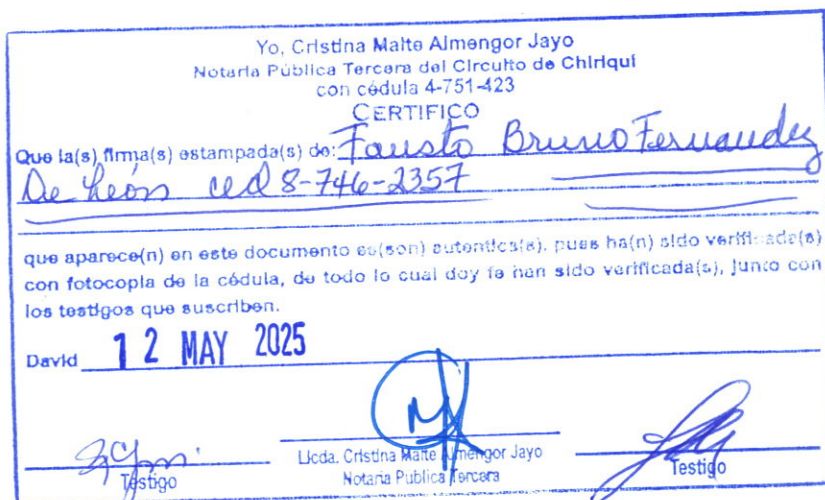 Yo, Cristina Maite Almengor Jayo
Notaria Pública Tercera del Circuito de Chiriquí
con cédula 4-751-423
CERTIFICO
Que la(s) firma(s) estampada(s) de: Fausto Bruno Fernandez
De León ced 8-746-2357
que aparece(n) en este documento es(son) autentica(s), pues ha(n) sido verificada(s)
con fotocopia de la cédula, de todo lo cual doy fe han sido verificada(s), junto con
los testigos que suscriben.
David 12 MAY 2025
Licda. Cristina Maite Almengor Jayo
Testigo Notaria Publica Tercera Testigo